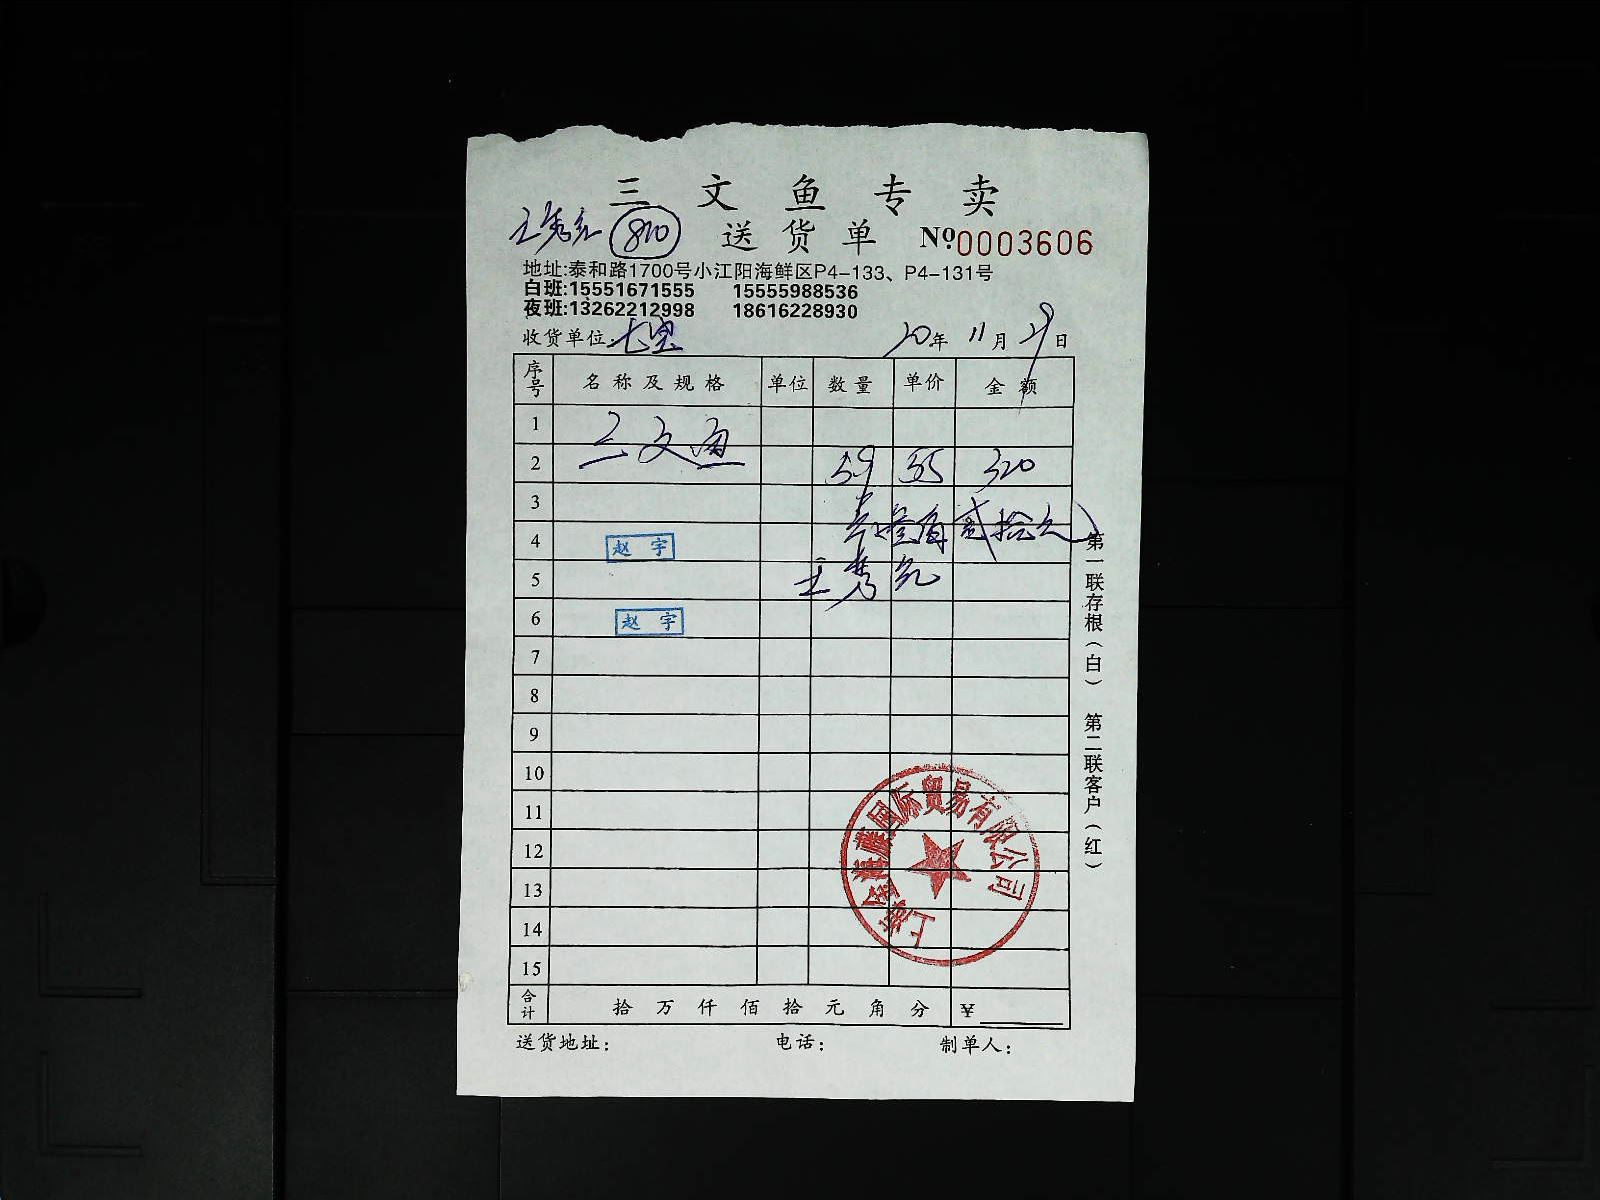 三文鱼专卖
王秀 820 送货单 No 0003606
地址:泰和路1700号小江阳海鲜区P4-133、P4-131号
白班:15551671555 15555988536
夜班:13262212998 18616228930
收货单位:七宝 20年11月29日
序号 名称及规格 单位 数量 单价 金额
1 三文鱼
2 59 55 320
3
4 赵宇 叁佰贰拾元
5 王秀
6 赵宇
7
8
9
10
11
12
13
14
15
合计 拾 万 仟 佰 拾 元 角 分 ¥
送货地址: 电话: 制单人:
第一联存根(白) 第二联客户(红)
上海 国际贸易有限公司